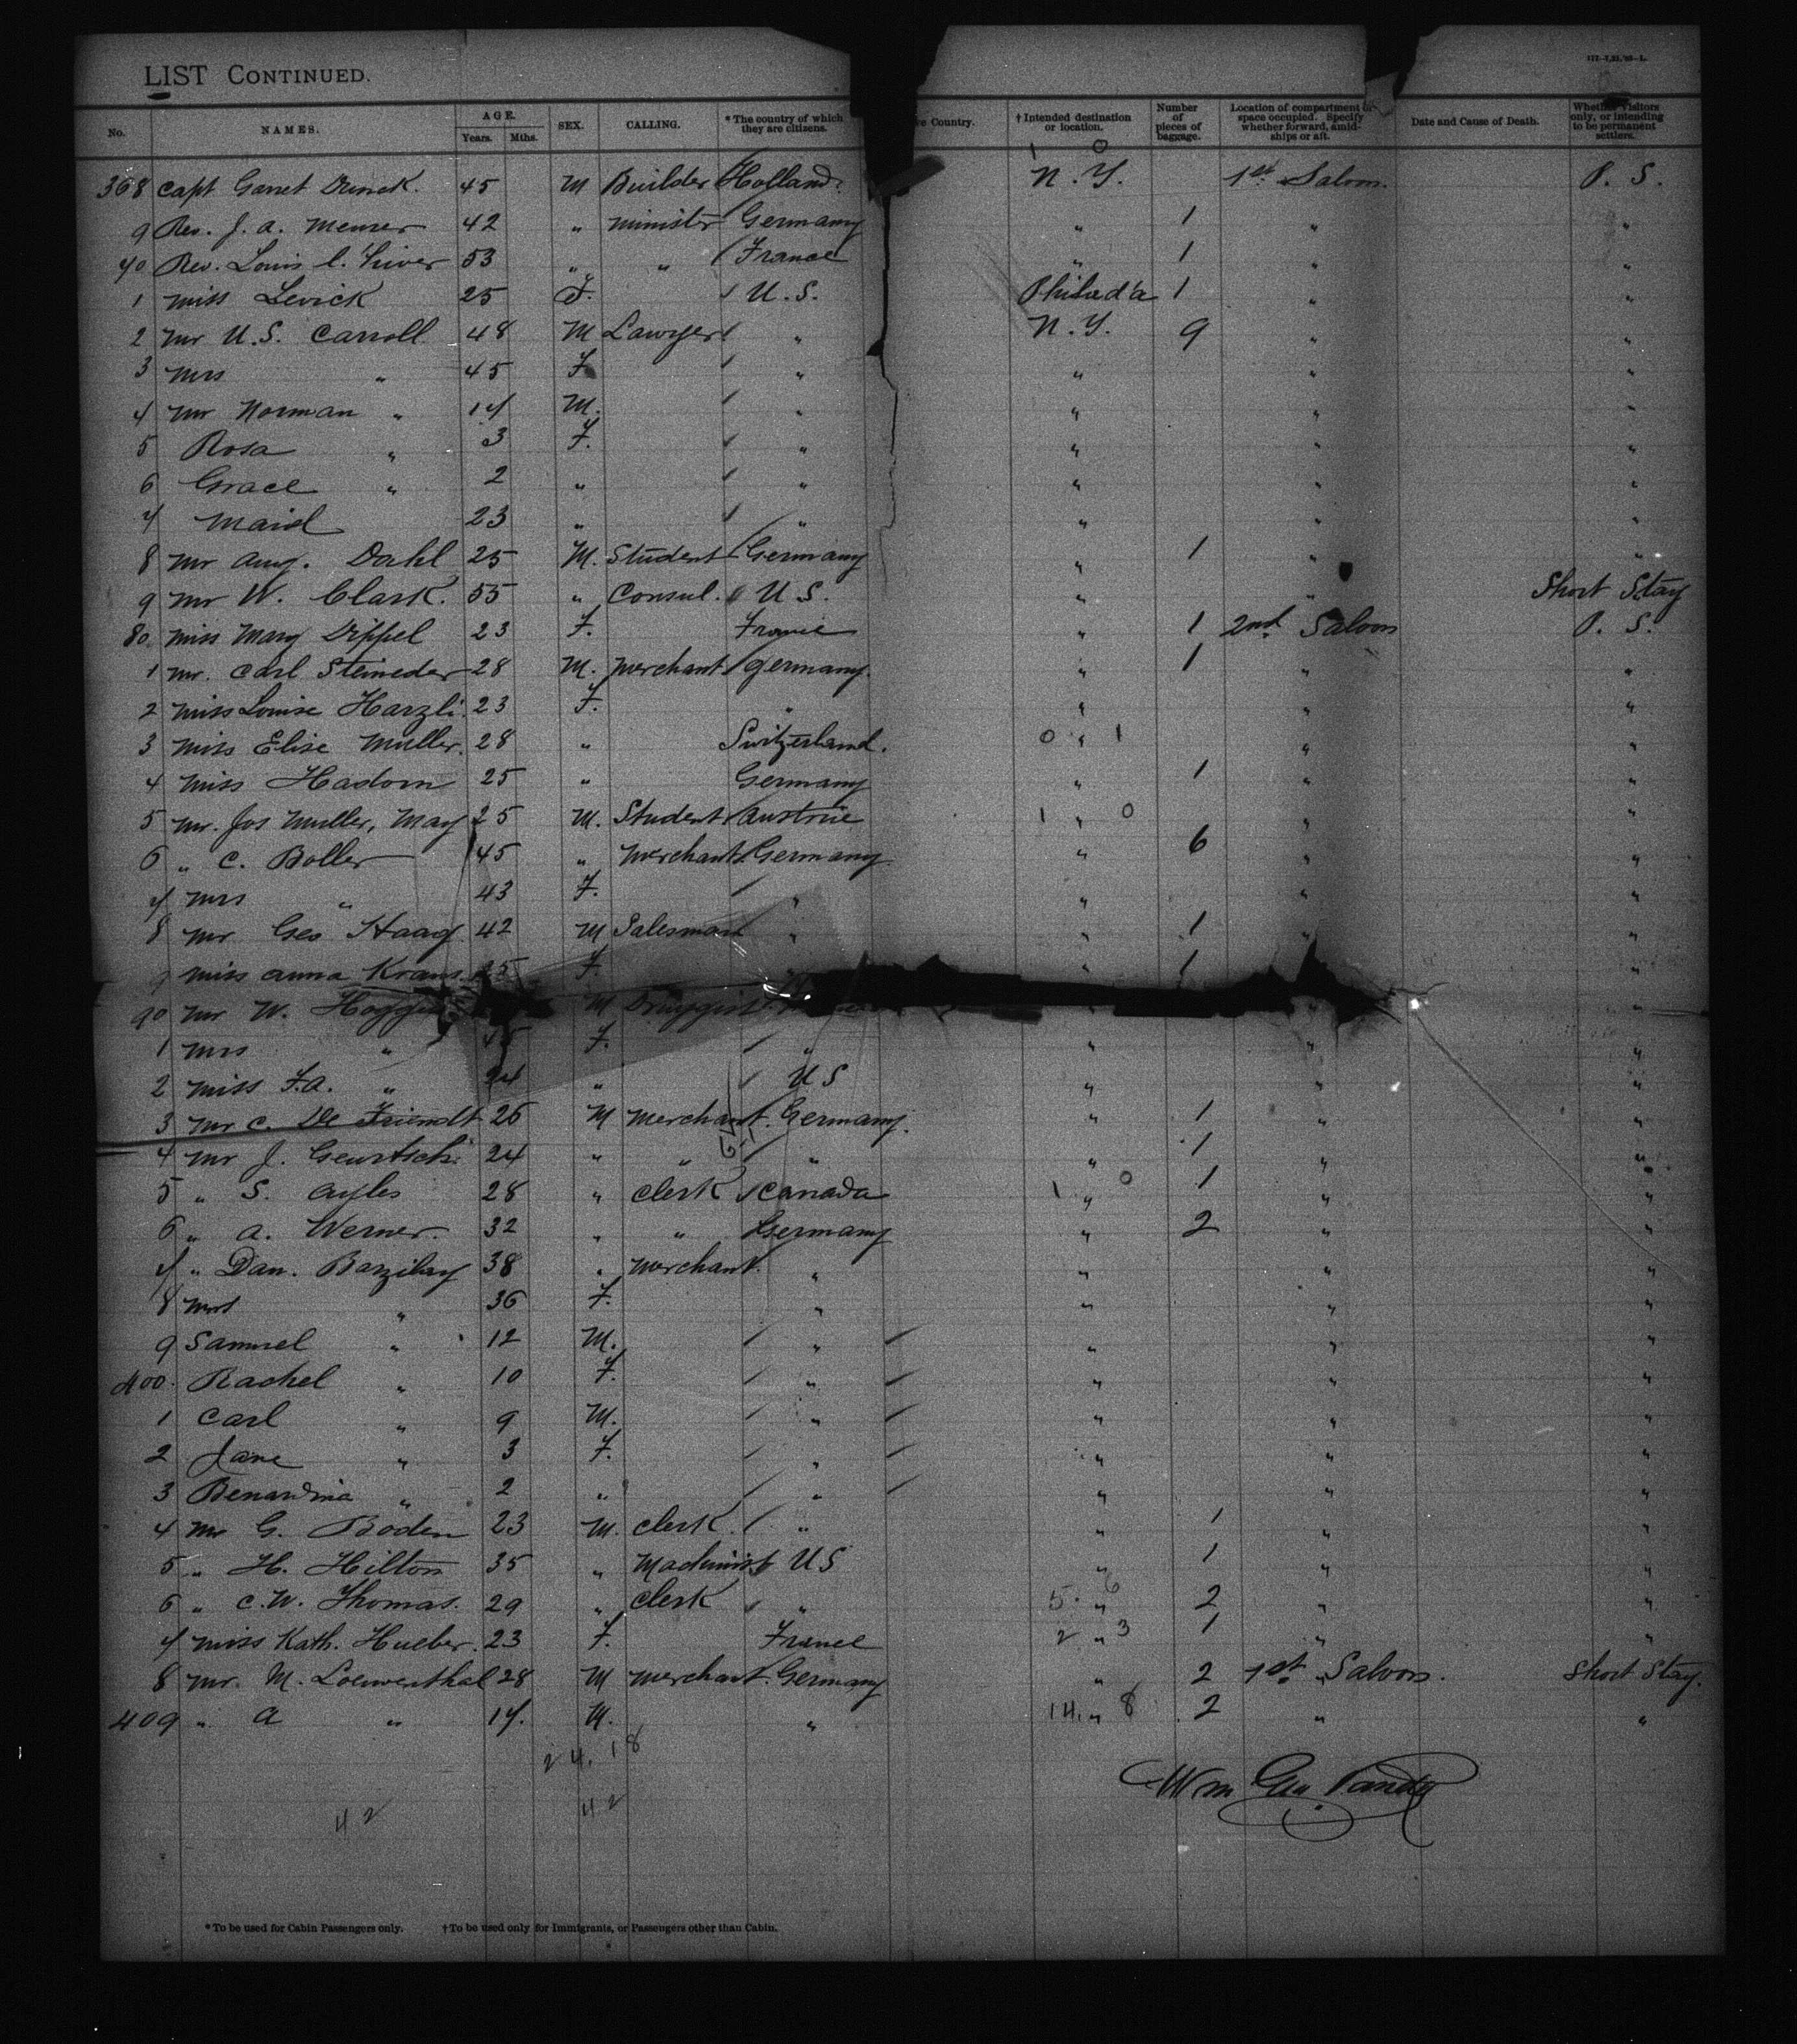 LIST CONTINUED.
No. NAMES. AGE. Years. Mths. SEX. CALLING. * The country of which they are citizens. ve Country. † Intended destination or location. Number of pieces of baggage. Location of compartment or space occupied. Specify whether forward, amidships or aft. Date and Cause of Death. Whether Visitors only, or intending to be permanent settlers.
1 0
368 Capt Garret 45 M Builder Holland. N. Y. 1st Saloon. P. S.
9 Rev. J. A. Menser 42 " minister Germany " 1 " "
70 Rev. Louis C. 53 " " France " 1 " "
1 miss Levick 25 F. U. S. Philad'a 1 " "
2 mr U. S. Carroll 48 M Lawyer " N. Y. 9 " "
3 mrs " 45 F " " " "
4 mr Norman " 14 M. " " " "
5 Rosa " 3 F. " " " "
6 Grace " 2 " " " " "
7 maid 23 " " " " "
8 mr Aug. Dahl 25 M. Student Germany " 1 " "
9 mr W. Clark. 55 " Consul. U S. " " Short Stay
80 miss Mary Dippel 23 F. France " 1 2nd Saloon P. S.
1 mr. Carl Steineder 28 M. merchant Germany. " 1 " "
2 miss Louise Harzli. 23 F. " " " "
3 miss Elise Muller. 28 " Switzerland. 0 " 1 " "
4 miss Hadorn 25 " Germany " 1 " "
5 mr. Jos Muller, May 25 M. Student Austrie 1 " 0 " "
6 " C. Boller 45 " merchant Germany " 6 " "
7 mrs " 43 F. " " " "
8 mr Geo Haag 42 M Salesman " " 1 " "
9 miss Anna Kraus 25 F. " " 1 " "
90 mr W. M Druggist " " "
1 mrs " F. " " " "
2 miss F. A. " 24 " U S " " "
3 mr C. De Friendt 26 M merchant. Germany. " 1 " "
4 mr J. 24 " " " " 1 " "
5 " S. Ayles 28 " Clerk Canada 1 " 0 1 " "
6 " A. Werner. 32 " " Germany " 2 " "
7 " Dan. Barzilay 38 " merchant. " " " "
8 mrs " 36 F. " " " "
9 Samuel " 12 M. " " " "
400. Rachel " 10 F. " " " "
1 Carl " 9 M. " " " "
2 Jane " 3 F. " " " "
3 Benardina " 2 " " " " "
4 mr G. Boden 23 M. Clerk. " " 1 " "
5 " H. Hilton 35 " Machinist U S " 1 " "
6 " C. W. Thomas. 29 " Clerk " 5 " 6 2 " "
7 miss Kath. Hueber. 23 F. France 2 " 3 1 " "
8 mr. M. Loewenthal 28 M merchant. Germany " 2 1st Saloon. Short Stay.
409 " A " 17. M. " 14. " 8 2 " "
24. 18
42 42
Wm Geo.
* To be used for Cabin Passengers only. † To be used only for Immigrants, or Passengers other than Cabin.